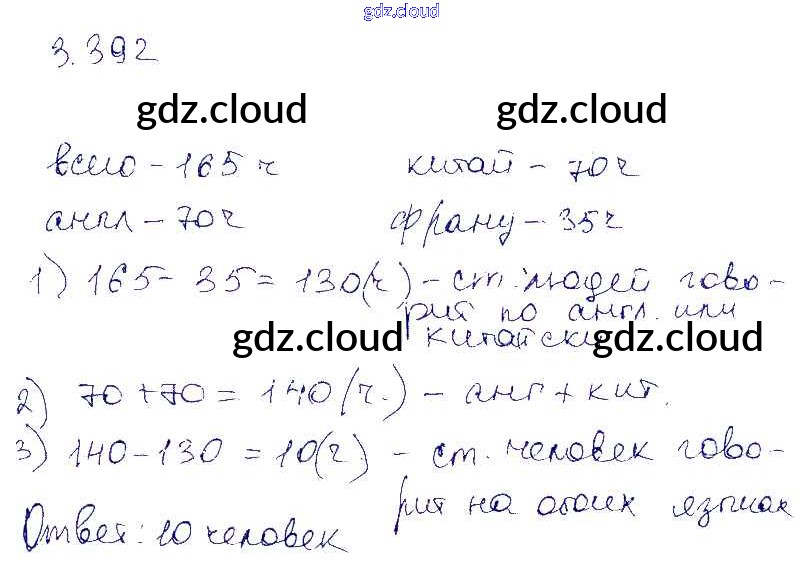 gdz.cloud
3.392
gdz.cloud gdz.cloud
всего - 165 ч китай - 70 ч
англ - 70 ч франц - 35 ч
1) 165 - 35 = 130(ч) - ст. людей гово-
рит по англ. или
gdz.cloud китайски gdz.cloud
2) 70 + 70 = 140 (ч.) - анг + кит.
3) 140 - 130 = 10(ч) - ст. человек гово-
рит на обоих языках
Ответ: 10 человек